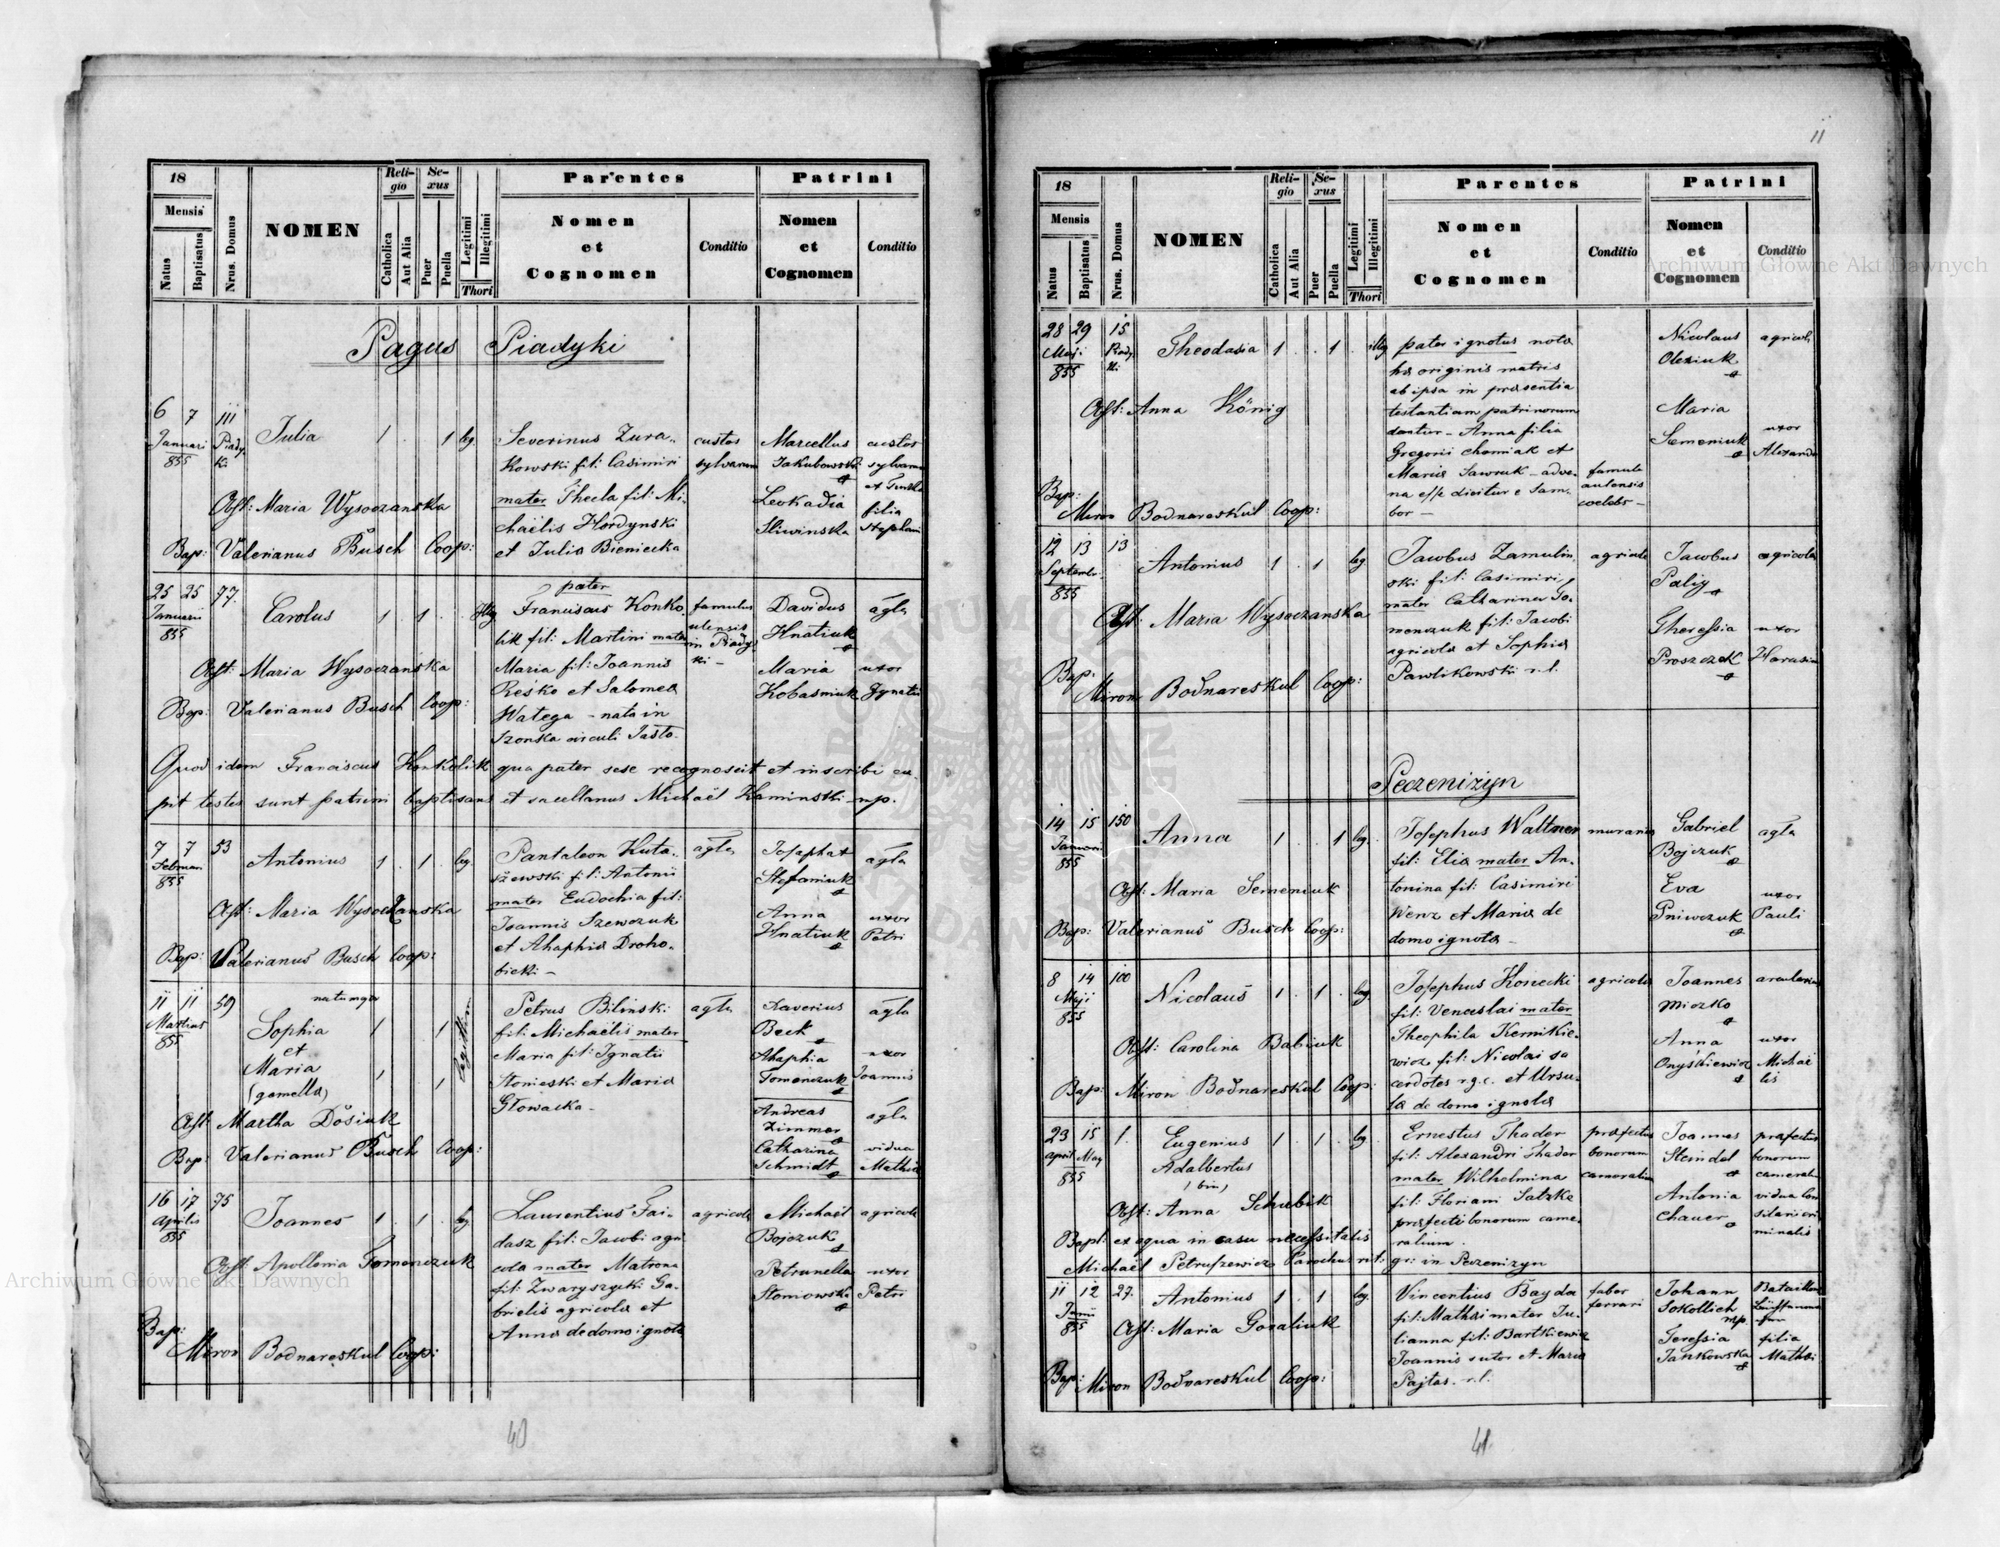 18
Mensis
Natus
Baptisatus
Nrus. Domus
NOMEN
Religio
Catholica
Aut Alia
Sexus
Puer
Puella
Legitimi
Illegitimi
Thori
Parentes
Nomen
et
Cognomen
Conditio
Patrini
Nomen
et
Cognomen
Conditio
Pagus Piadyki
6 7 111
Januari Piady
855 ki
Julia 1 . 1 leg.
Severinus Zura-
kowski fil: Casimiri
mater Thecla fil: Mi-
chaëlis Hordynski
et Julia Bieniecka
custos
sylvarum
Marcellus
Jakubowski
Leokadia
Sliwinska
custos
sylvarum
filia
Stephani
Ast: Maria Wysoczanska
Bap: Valerianus Busch Coop:
25 25 77.
Januarii
855
Carolus 1 . 1 . Illeg
pater
Franciscus Konko
lik fil: Martini mater
Maria fil: Joannis
Reśko et Salomea
Watega - nata in
circuli Jasło-
famulus
in Piady
ki -
Davidus
Hnatiuk
Maria
Kobasniuk
agla
uxor
Ignatii
Ast: Maria Wysoczanska
Bap: Valerianus Busch Coop:
Quod idem Franciscus Konkolik qua pater sese recognoscit et inscribi cu-
pit testes sunt patrini baptisans et sacellanus Michaël Kaminski mp.
7 7 53
Februar
855
Antonius 1 . 1 . leg.
Pantaleon Kuta-
szewski fil: Antonii
mater Eudochia fil:
Joannis Szewczuk
et Ahaphia Droho-
bicki -
agla
Josaphat
Stefaniuk
Anna
Hnatiuk
agla
uxor
Petri
Ast: Maria Wysoczanska
Bap: Valerianus Busch Coop:
11 11 59
Martius
855
Sophia 1 1
et
Maria 1 1
(gemella)
Petrus Bilinski
fil: Michaëlis mater
Maria fil: Ignatii
Stonieski et Maria
Głowacka -
agla
Xaverius
Beck
Ahaphia
Tomenczuk
Andreas
Zimmer
Catharina
Schmidt
agla
uxor
Joannis
agla
vidua
Mathia
Ast: Martha Dosiuk
Bap: Valerianus Busch Coop:
16 17 75
Aprilis
855
Joannes 1 . 1 . leg
Laurentius Fai-
dasz fil: Jacobi agri
cola mater Matrona
fil: Zwaryszycki Ga-
brielis agricola et
Anna de domo ignota
agricola
Michaël
Bojczuk
Petrunella
Stoniowski
agricola
uxor
Petri
Ast: Apollonia Tomenczuk
Bap:
Miron Bodnareskul Coop:
40
11
18
Mensis
Natus
Baptisatus
Nrus. Domus
NOMEN
Religio
Catholica
Aut Alia
Sexus
Puer
Puella
Legitimi
Illegitimi
Thori
Parentes
Nomen
et
Cognomen
Conditio
Patrini
Nomen
et
Cognomen
Conditio
28 29 15
Maji Piady
855 ki
Theodosia 1 . . 1 . illeg
pater ignotus nota
ha originis matris
ab ipsa in praesentia
testantium patrinorum
dantur - Anna filia
Gregorii Chomiak et
Maria Sawruk - adve-
na esse dicitur e Sam-
bor -
famula
aulensis
coelebs -
Nicolaus
Olexiuk
Maria
Semeniuk
agricola
uxor
Alexandri
Ast: Anna König
Bap:
Miron Bodnareskul Coop:
12 13 13
Septembr.
855
Antonius 1 . 1 leg
Jacobus Zamulin-
ski fil: Casimiri,
mater Catharina To-
menczuk fil: Jacobi
agricola et Sophia
Pawlikowski r. l.
agricola
Jacobus
Palij
Theressia
Proszczek
agricola
uxor
Ast: Maria Wysoczanska
Bap:
Miron Bodnareskul Coop:
Peczeniżyn
14 15 150
Januari
855
Anna 1 . . 1 leg.
Josephus Waltner
fil: Elia mater An-
tonina fil: Casimiri
Wenz et Maria de
domo ignota -
murarius
Gabriel
Bojczuk
Eva
Pniwczuk
agla
uxor
Pauli
Ast: Maria Semeniuk
Bap: Valerianus Busch Coop:
8 14 100
Maji
855
Nicolaus 1 . 1 . leg
Josephus Konecki
fil: Venceslai mater
Theophila Kernikie-
wicz fil: Nicolai sa
cerdotes r. g. c. et Ursu-
la de domo ignota
agricola
Joannes
Miczko
Anna
Onyskiewicz
arcularius
uxor
Michaë
lis
Ast: Carolina Babiuk
Bap: Miron Bodnareskul Coop:
23 15 1.
April May
855
Eugenius 1 . 1 . leg.
Adalbertus
(bin)
Ernestus Thader
fil: Alexandri Thader
mater Wilhelmina
fil: Floriani Satzke
praefecti bonorum came-
ralium.
praefectus
bonorum
cameralium
Joannes
Steindel
Antonia
Chauer
praefectus
bonorum
cameraliu
vidua con
siliarii cri
minalis
Ast: Anna Schubik
Bapt: ex aqua in casu necessitatis
Michaël Petruszewicz Parochus rit: gr: in Peczenizyn
11 12 27.
Junii
855
Antonius 1 . 1 leg.
Vincentius Bayda
fil: Mathai mater Ju-
lianna fil: Bartkiewicz
Joannis sutor et Maria
Pajtas. r. l.
faber
ferrari
Johann
Sokollich
mp.
Teressia
Jankowska
filia
Mathai
Ast: Maria Gozaliuk
Bap: Miron Bodnareskul Coop:
41
Archiwum Główne Akt Dawnych
Archiwum Główne Akt Dawnych